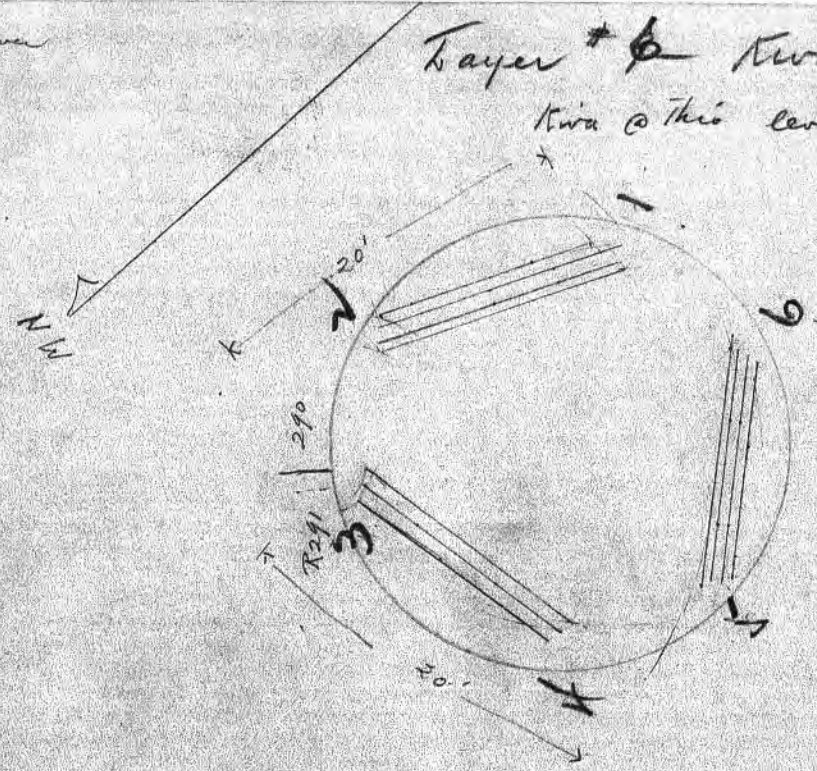 Layer # 6 Kiv
Kiva @ This lev
1
20'
2
6
NW
290
R291
3
5
4
20'